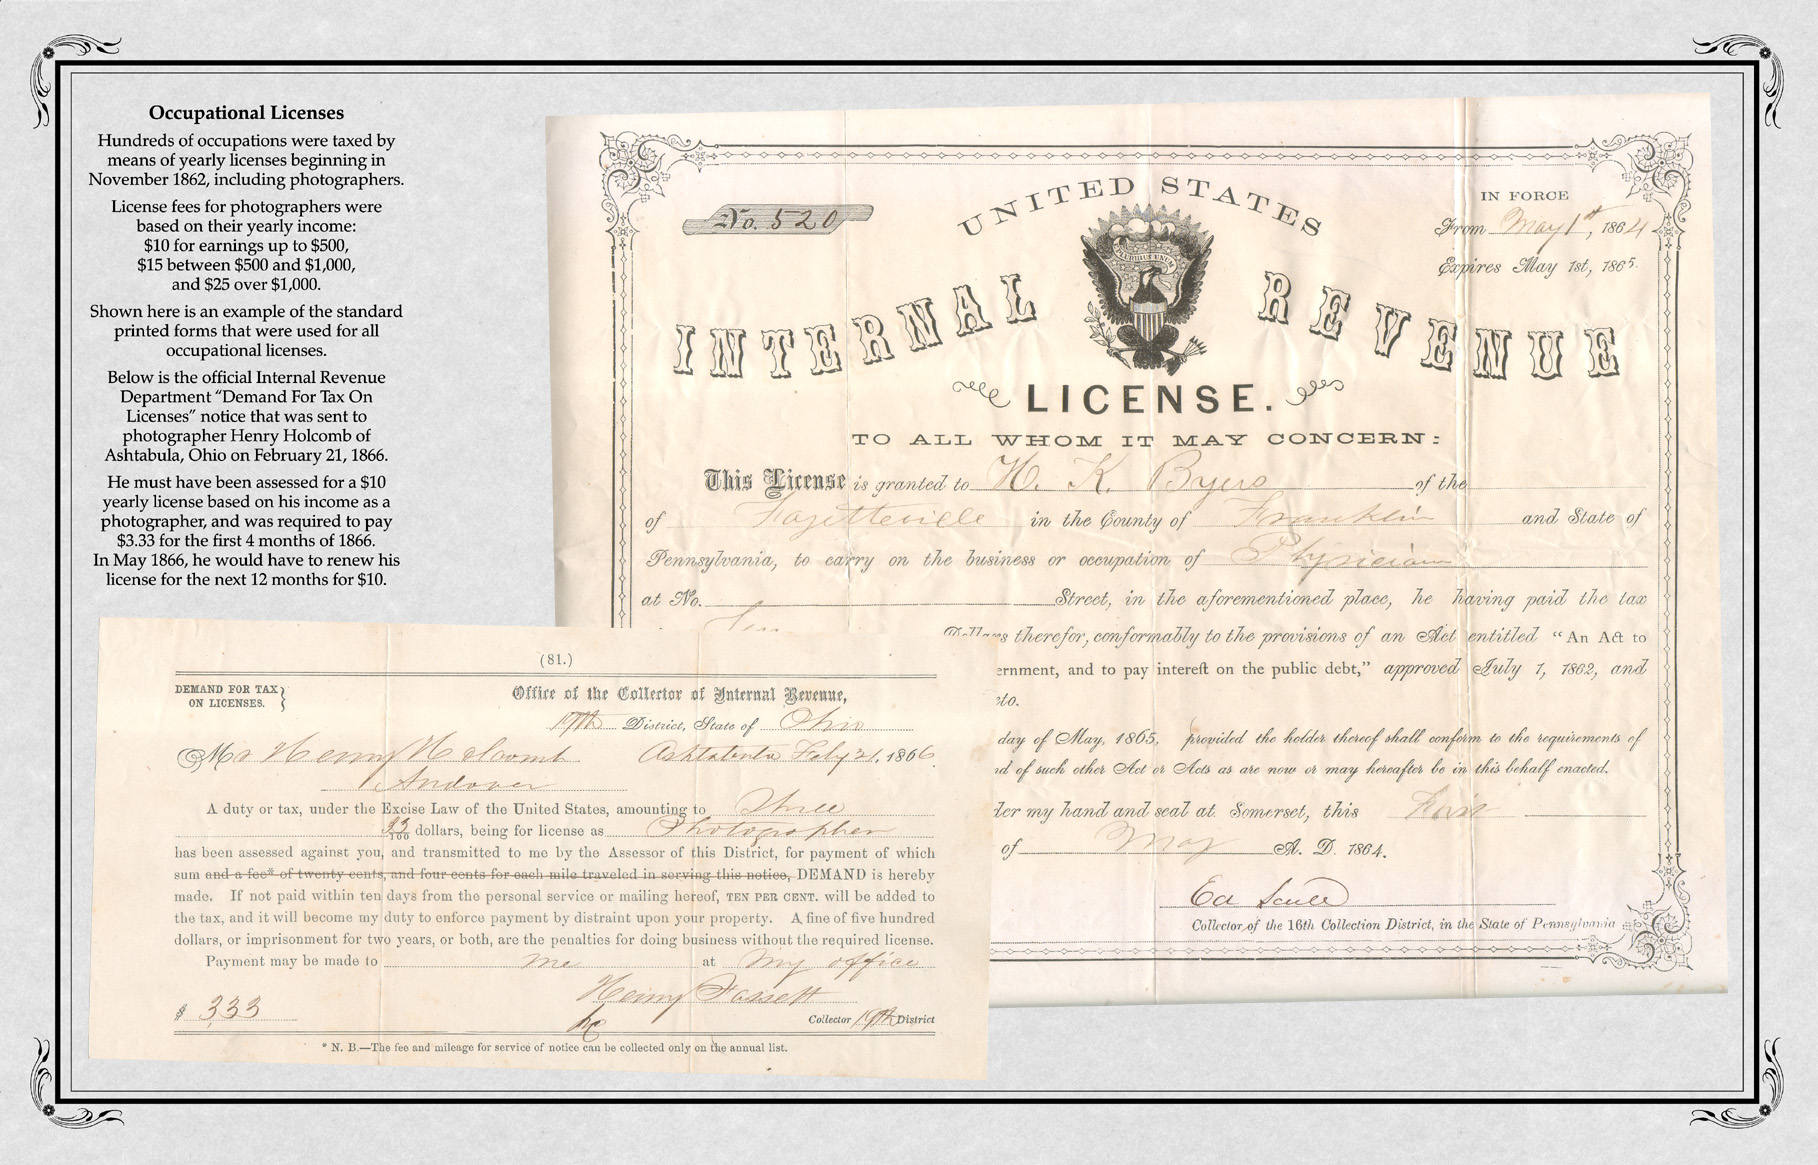 Occupational Licenses
Hundreds of occupations were taxed by
means of yearly licenses beginning in
November 1862, including photographers.
License fees for photographers were
based on their yearly income:
$10 for earnings up to $500,
$15 between $500 and $1,000,
and $25 over $1,000.
Shown here is an example of the standard
printed forms that were used for all
occupational licenses.
Below is the official Internal Revenue
Department “Demand For Tax On
Licenses” notice that was sent to
photographer Henry Holcomb of
Ashtabula, Ohio on February 21, 1866.
He must have been assessed for a $10
yearly license based on his income as a
photographer, and was required to pay
$3.33 for the first 4 months of 1866.
In May 1866, he would have to renew his
license for the next 12 months for $10.
No. 520
UNITED STATES
IN FORCE
From May 1st, 1864
Expires May 1st, 1865.
PLURIBUS UNUM
INTERNAL REVENUE
LICENSE.
TO ALL WHOM IT MAY CONCERN:
This License is granted to H. K. Byers of the
of Fayetteville in the County of Franklin and State of
Pennsylvania, to carry on the business or occupation of Physician
at No. Street, in the aforementioned place, he having paid the tax
Ten Dollars therefor, conformably to the provisions of an Act entitled “An Act to
ernment, and to pay interest on the public debt,” approved July 1, 1862, and
to.
day of May, 1865, provided the holder thereof shall conform to the requirements of
nd of such other Act or Acts as are now or may hereafter be in this behalf enacted.
der my hand and seal at Somerset, this First
of May A. D. 1864.
Ed Scull
Collector of the 16th Collection District, in the State of Pennsylvania
(81.)
DEMAND FOR TAX
ON LICENSES.
Office of the Collector of Internal Revenue,
19th District, State of Ohio
Mr Henry Holcomb Ashtabula Feby 21, 1866
Andover
A duty or tax, under the Excise Law of the United States, amounting to Three
33/100 dollars, being for license as Photographer
has been assessed against you, and transmitted to me by the Assessor of this District, for payment of which
sum and a fee* of twenty cents, and four cents for each mile traveled in serving this notice, DEMAND is hereby
made. If not paid within ten days from the personal service or mailing hereof, TEN PER CENT. will be added to
the tax, and it will become my duty to enforce payment by distraint upon your property. A fine of five hundred
dollars, or imprisonment for two years, or both, are the penalties for doing business without the required license.
Payment may be made to me at my office
Henry Fassett
$ 3.33
Collector 19th District
* N. B.—The fee and mileage for service of notice can be collected only on the annual list.